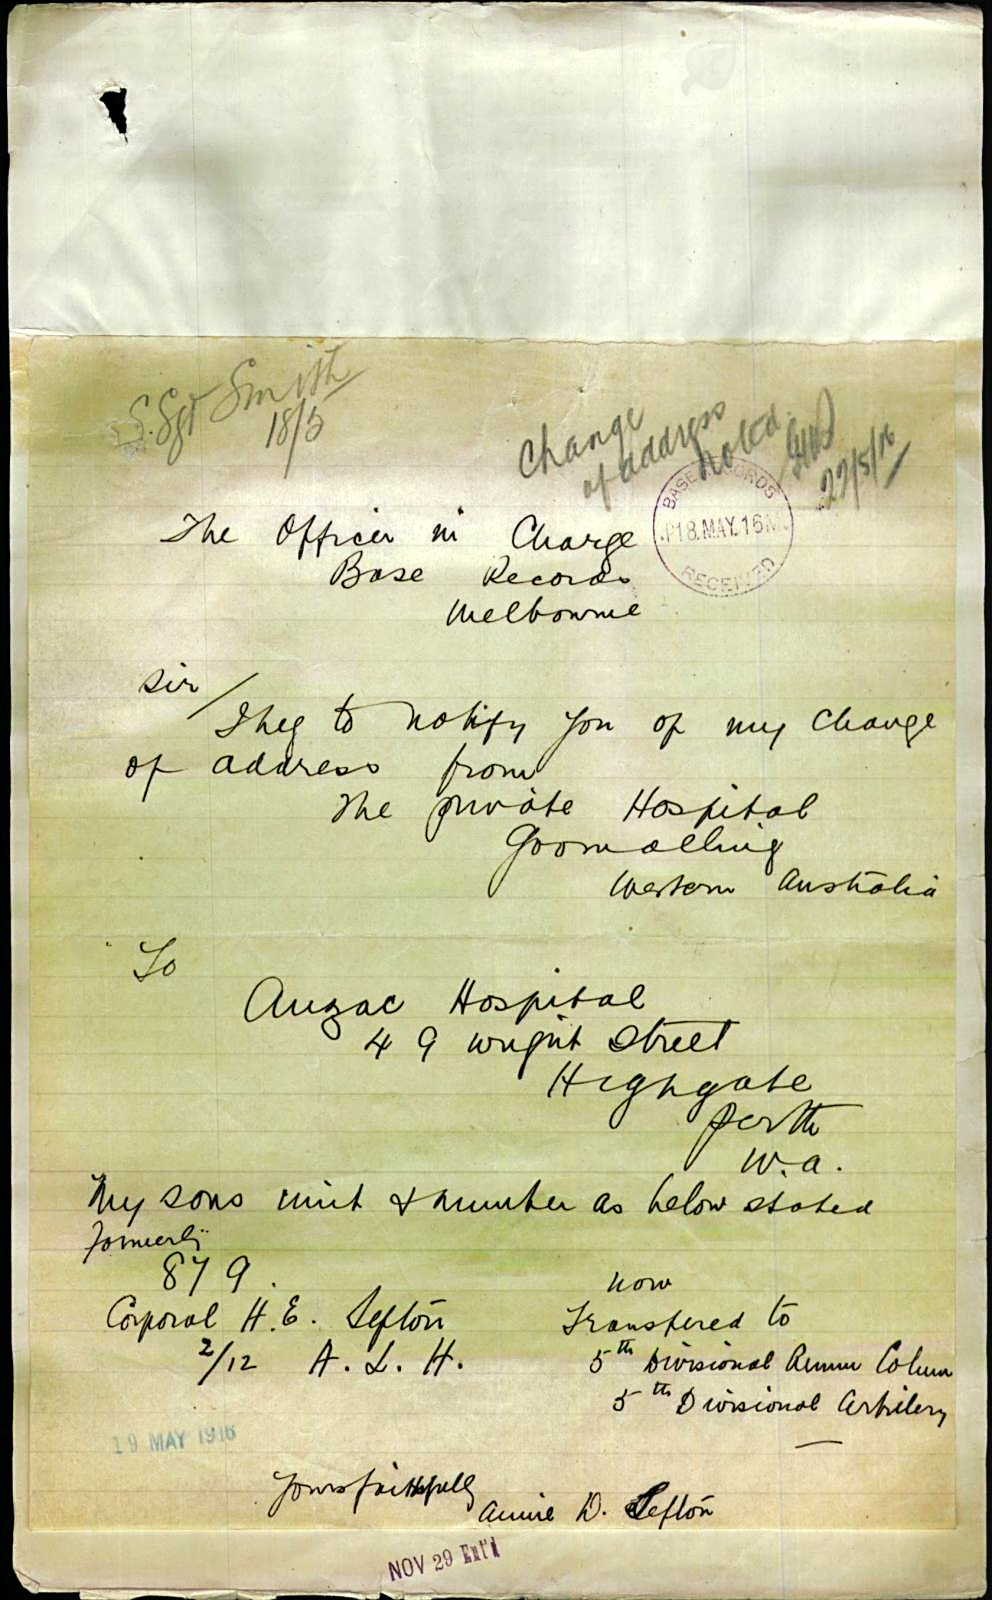 S. Sgt Smith
18/5
Change
of address
noted.
22/5/16
BASE RECORDS
18. MAY. 16
RECEIVED
The Officer in Charge
Base Records
Melbourne
Sir/
I beg to notify you of my change
of address from
The private Hospital
Goomalling
Western Australia
To
Anzac Hospital
49 Wright Street
Highgate
Perth
W.A.
My sons unit & number as below stated
Formerly
879.
Corporal H. E. Sefton
2/12 A. L. H.
now
Transfered to
5th Divisional Ammn Colum
5th Divisional Artilery
19 MAY 1916
Yours faithfully
Annie D. Sefton
NOV 29 Ent'd